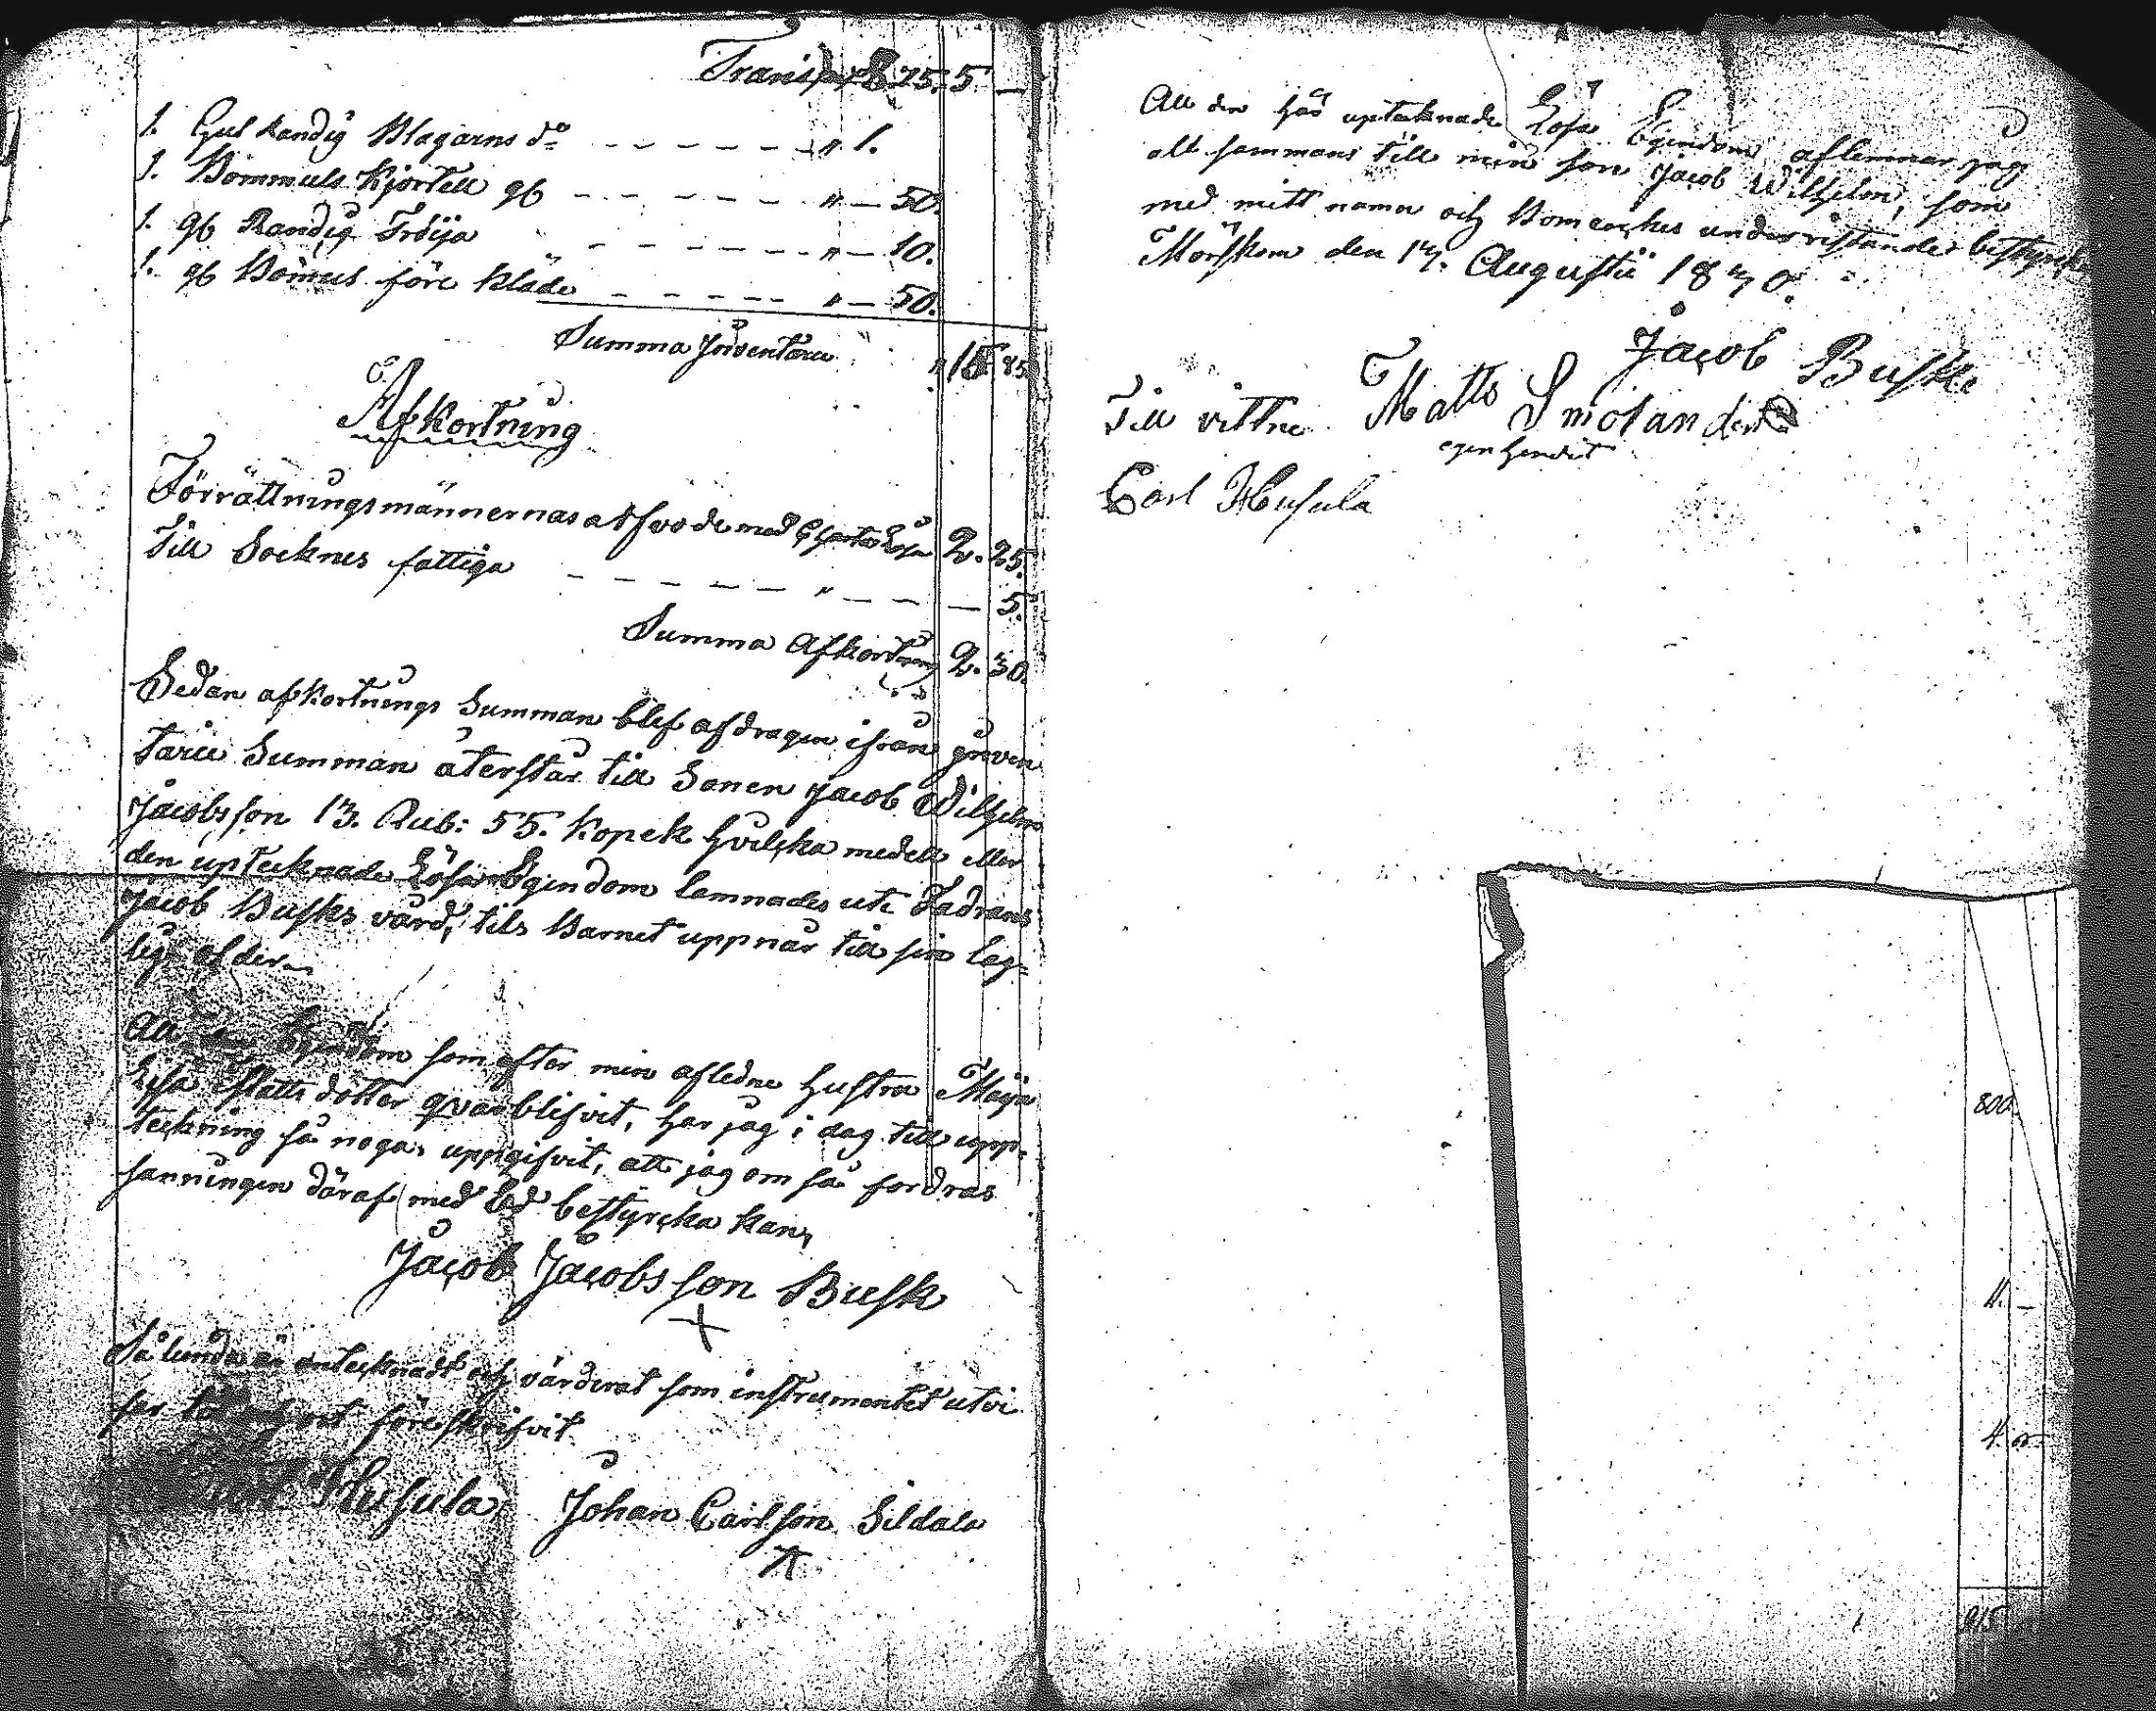 Transport 8 25. 5 —
1. Gul Randig Blagarns do — — — — — — " 1.
1. Bommuls Kjortell gb — — — — — " — 50.
1. gb Randig Tröija — — — — — " — 10.
1. gb Bomuls före kläde — — — — — " — 50.
Summa Inventarii " 15. 85
Afkortning
Förrättningsmännernas arfvode med Charta 2. 25.
Till Socknes fattiga — — — — — " — — — 5.
Summa Afkortning 2. 30.
Sedan afkortnings Summan blef afdragen ifrån Inven
tarii Summan återstår till Sonen Jacob Wilhelm
Jacobsson 13. Rub: 55. Kopek hvilcka medell eller
den uptecknade Lösa Egindom lemnades uti Fadrans
Jacob Busks vård, tils Barnet uppnår till sin lag=
liga ålder
All den Egendom som efter min afledne hustru Maija
Lisa Matts dotter qvarblifvit, har jag i dag till upp-
teckning så noga, uppgifvit, att jag om så fordras
sanningen däraf med Ed bestyrcka kan,
Jacob Jacobsson Busk
Så lunda är antecknadt och värderat som instrumentet utvi
ser till och vit föreskrifvit
Husula Johan Carlsson Sildala
All den här uptecknade Lösa Egindom aflemnar jag
alt sammans till min son Jacob Wilhelm, som
med mitt namn och Bomerckes underristande bestyrcks
Mörskom den 17. Augustii 1870.
Jacob Busk
Till vittne Matts Smolander
egenhendit
Carl Husula
800.
11. —
4.
815